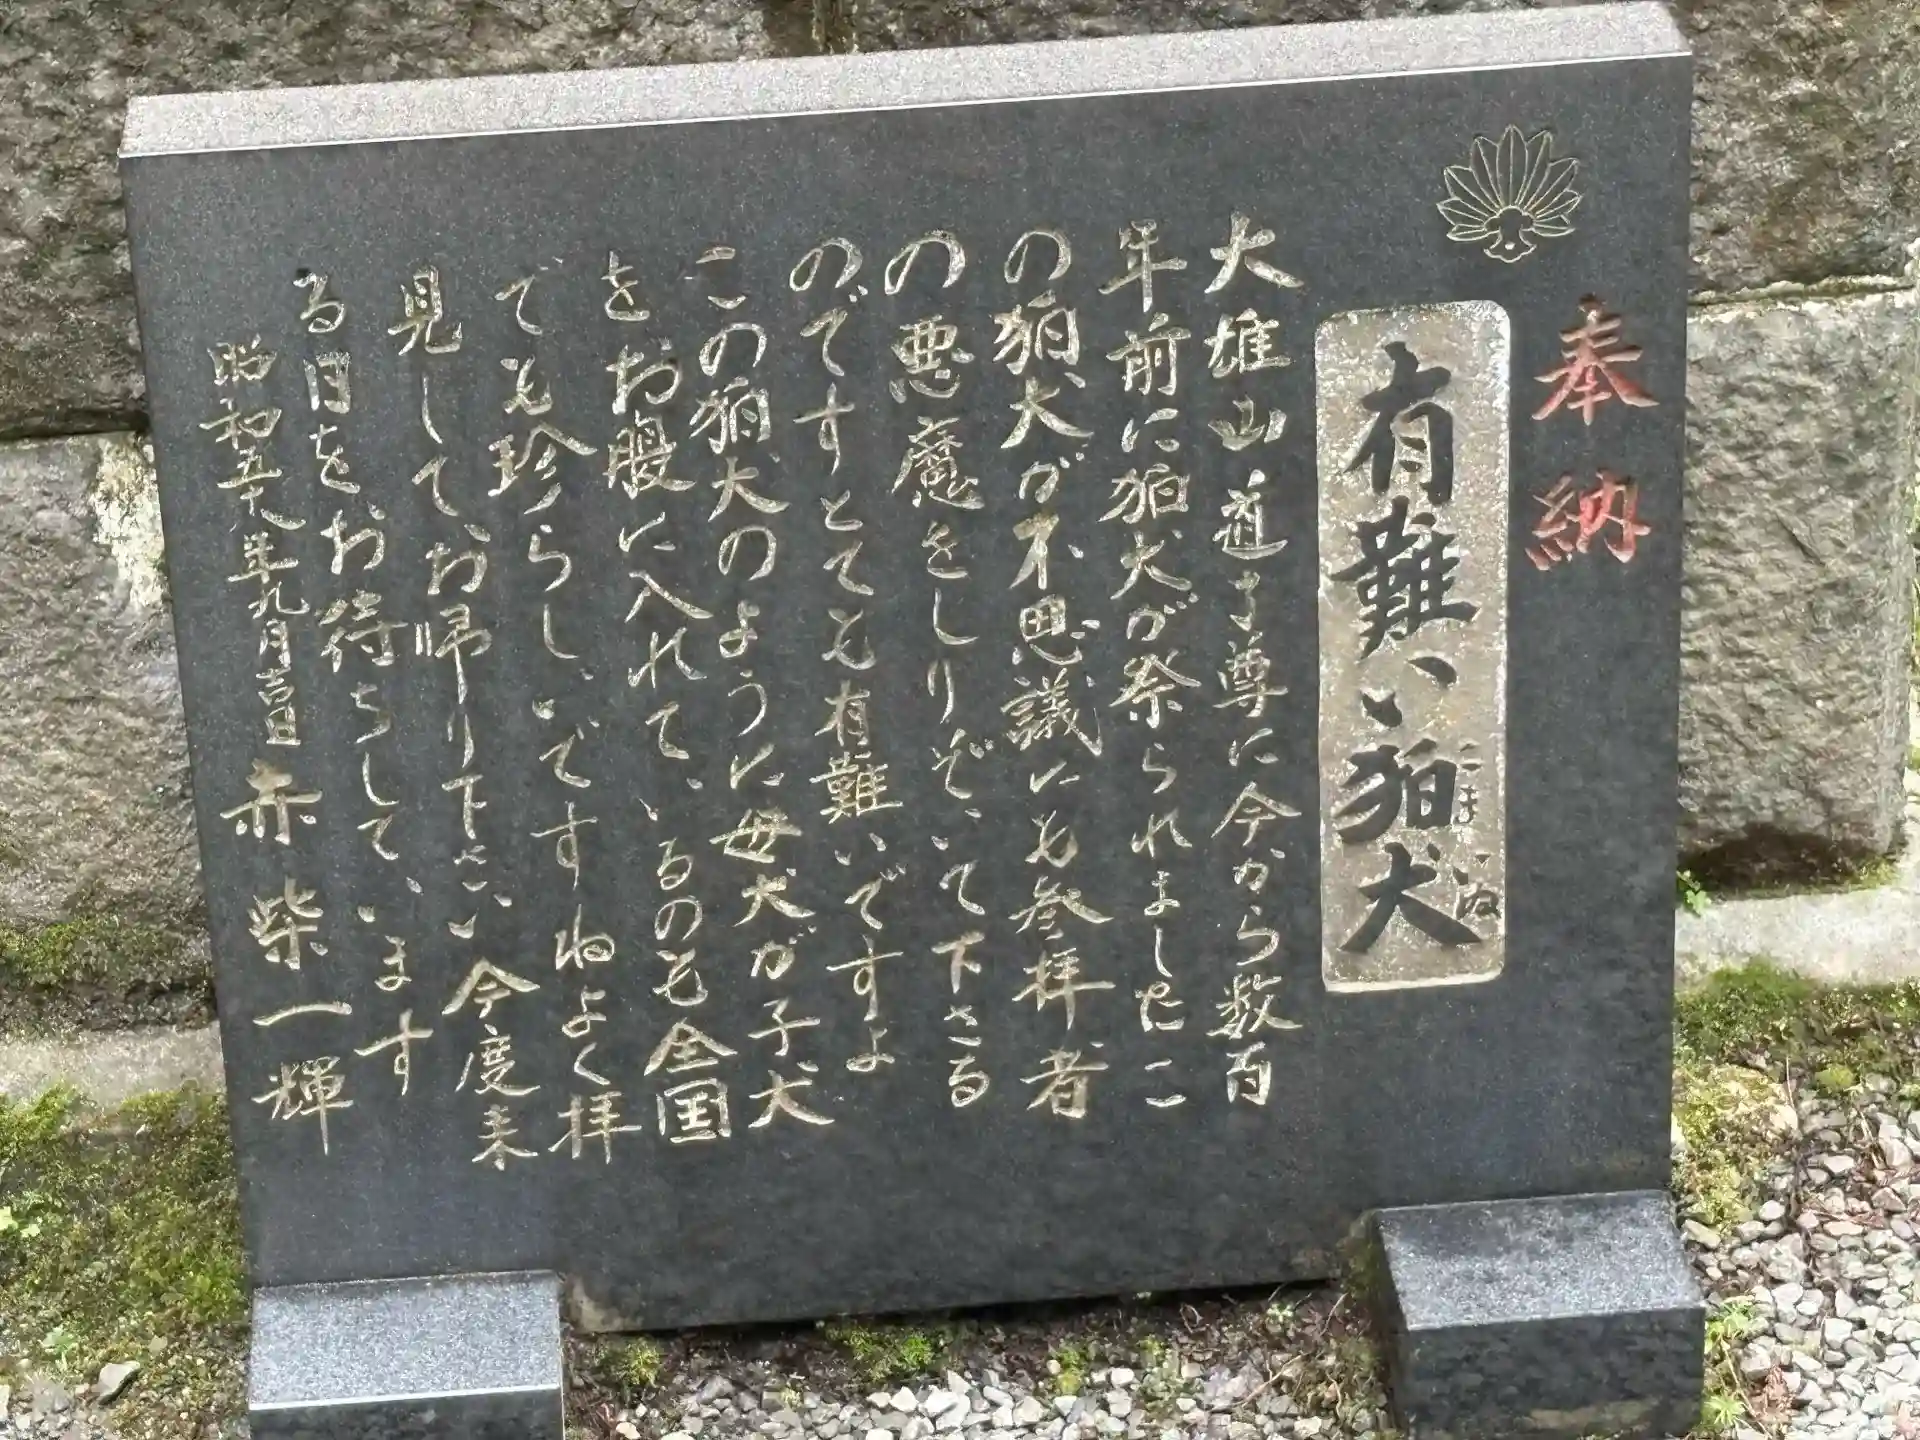 奉納
有難い狛犬
こまいぬ
大雄山道了尊に今から数百
年前に狛犬が祭られましたこ
の狛犬が不思議にも参拝者
の悪魔をしりぞいて下さる
のですとても有難いですよ
この狛犬のように母犬が子犬
をお腹に入れているのも全国
でも珍らしいですねよく拝
見してお帰り下さい今度来
る日をお待ちしています
昭和五十八年九月吉日 赤柴一輝